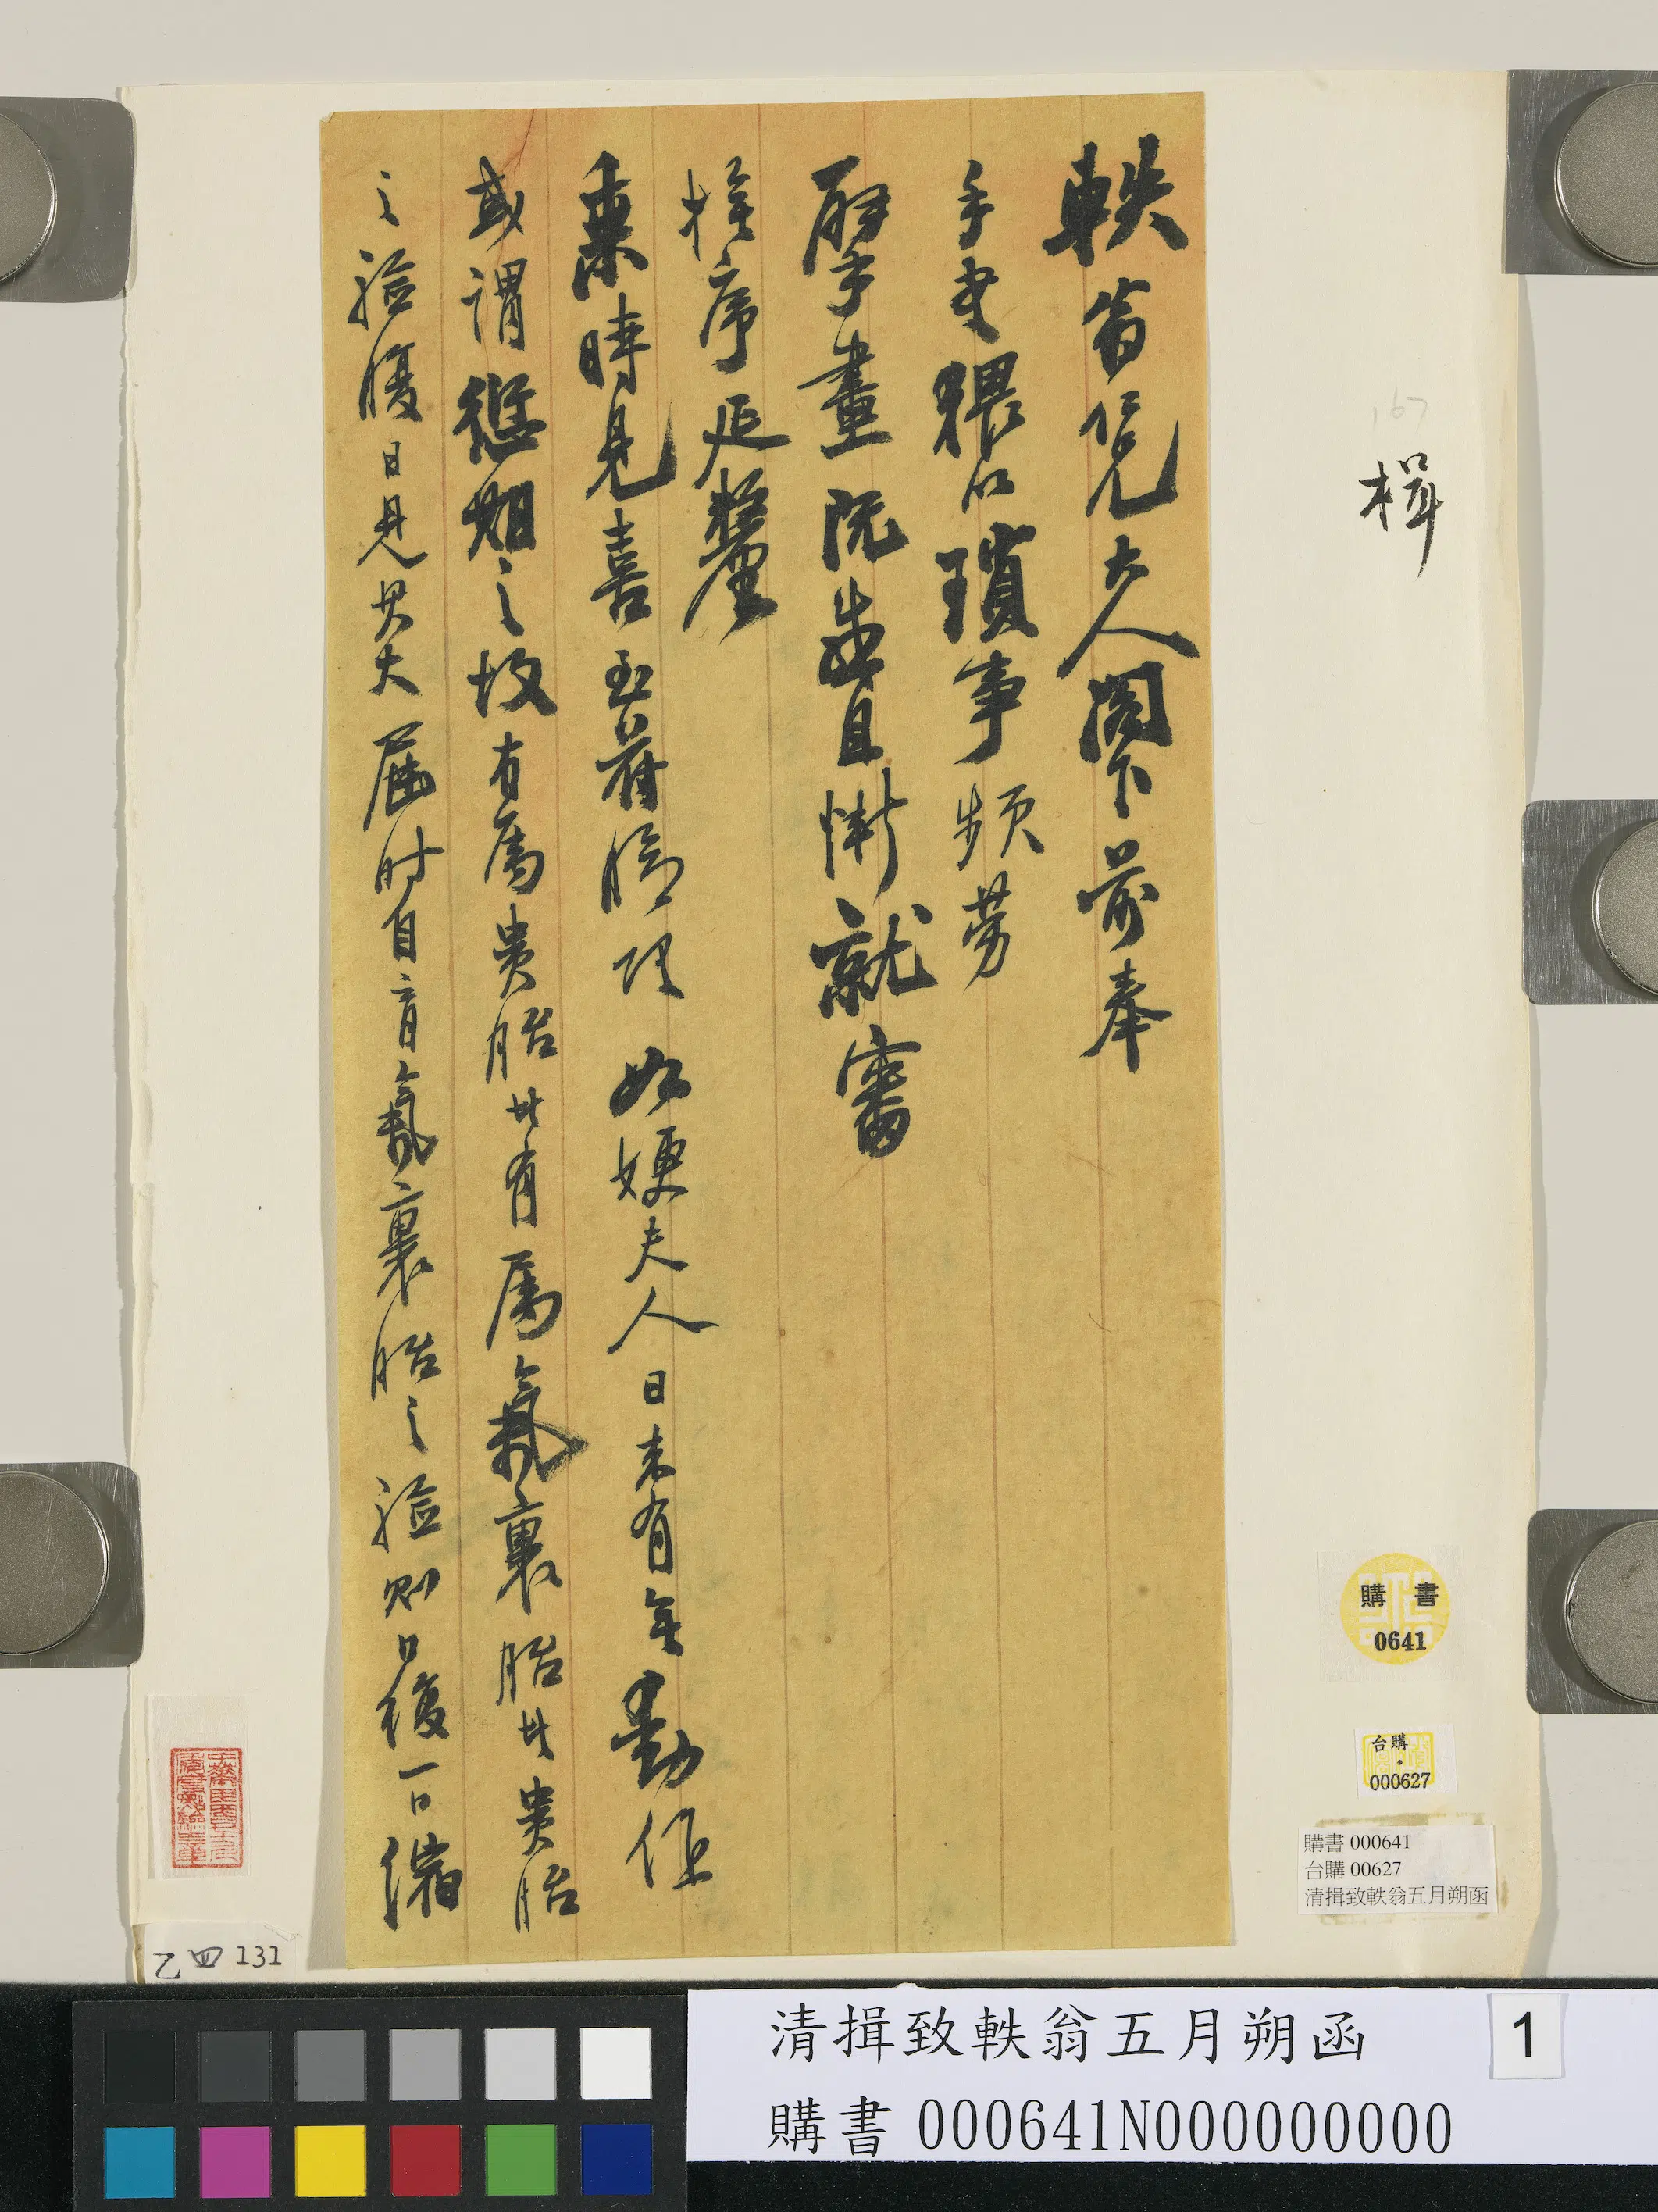 軼翁仁兄大人閣下前奉
手書猥以瑣事頻勞
擘畫既感且慚就審
榷序延釐
棗時見喜至藉臍頌如嫂夫人日來有無動作
或謂愆期之故有為貴胎此有屬氣裹胎其貴胎
之驗腹日見其大屆時自育氣裹胎之驗則日復一日縮
167
楫
購書
0641
台購
000627
購書 000641
台購 00627
清揖致軼翁五月朔函
乙四131
清揖致軼翁五月朔函
1
購書 000641N000000000